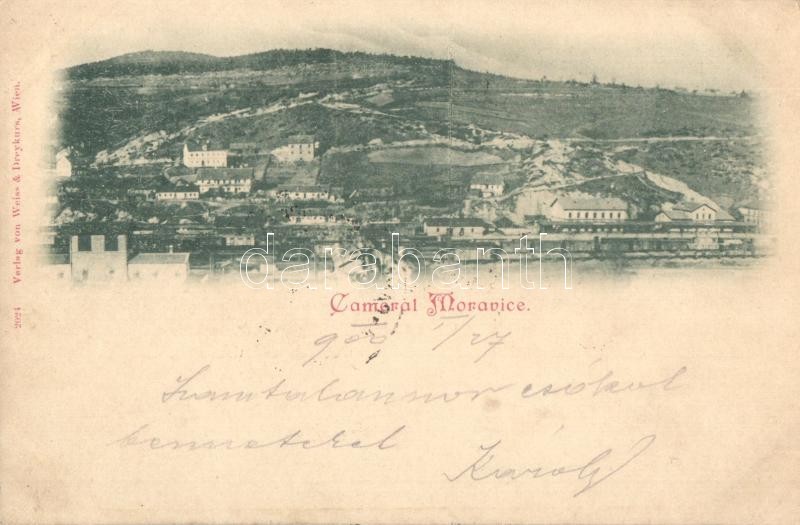 2024 Verlag von Weiss & Dreykurs, Wien.
darabanth
Cameral Moravice.
900 V/27
Számtalanszor csókol
benneteket
Károly